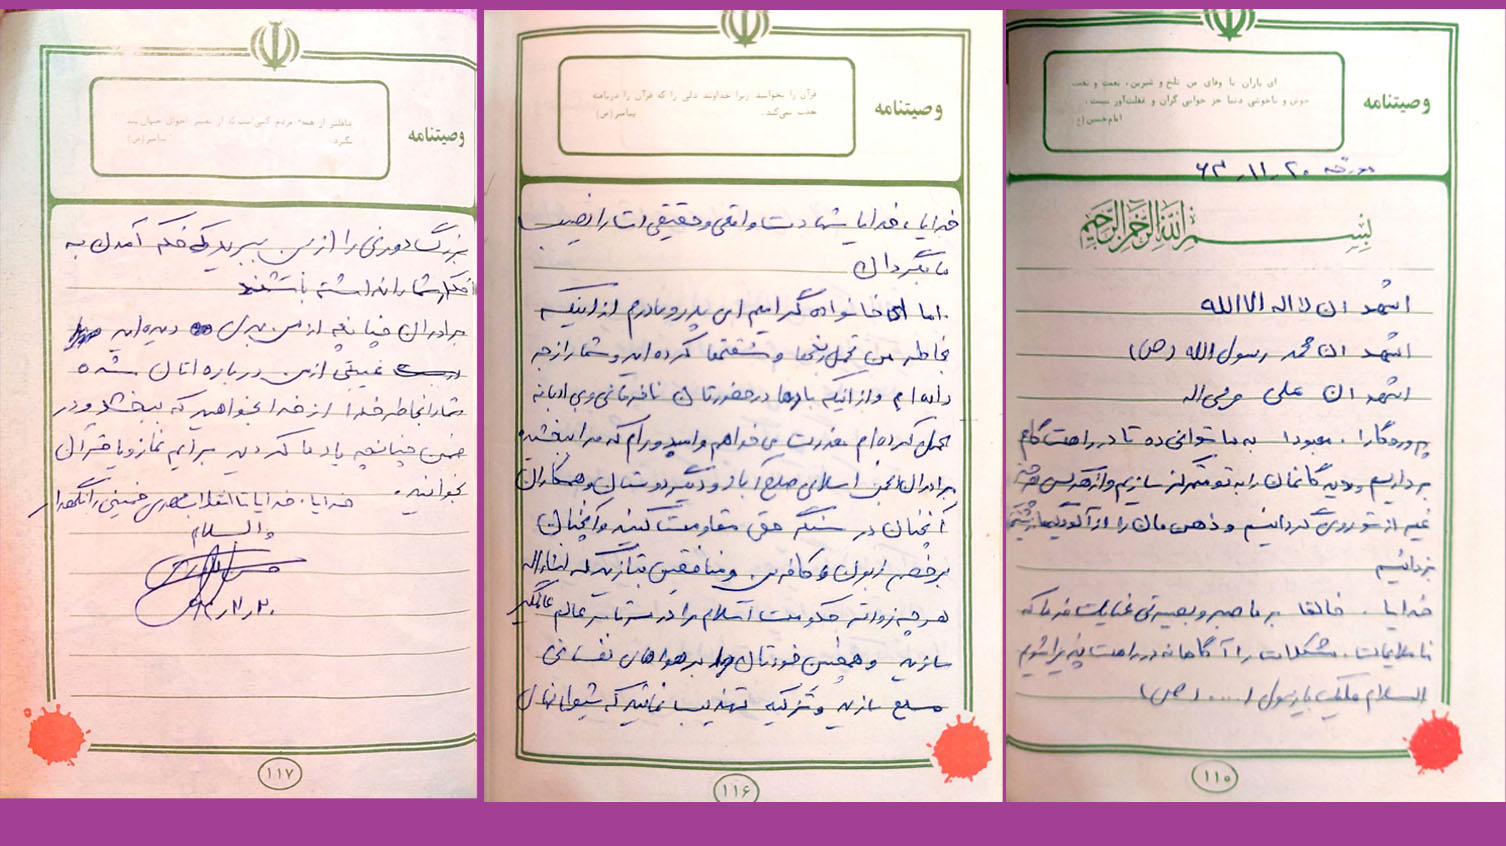 ای یاران با وفای من تلخ و شیرین، نعمت و نقمت
خوش و ناخوشی دنیا جز خوابی گران و غفلت‌آور نیست.
امام حسین (ع)
وصیتنامه
مورخه ۶۳،۱۱،۲۰
بسم الله الرحمن الرحیم
اشهد ان لا اله الا الله
اشهد ان محمد رسول الله (ص)
اشهد ان علی ولی اله
پروردگارا، معبودا به ما توانی ده تا در راهت گام
برداریم و دیدگانمان را به تو متمرکز سازیم و از هر کس
غیر از تو روی گردانیم و ذهن مان را از آلودگیها
بزدائیم
خدایا، خالقا بر ما صبر و بصیرتی عنایت فرما که
ناملایمات، مشکلات را آگاهانه در راهت پذیرا شویم
السلام علیک یا رسول ا... (ص)
۱۱۵
قرآن را بخوانید، زیرا خداوند دلی را که قرآن را دریافته
عذاب نمی‌کند. پیامبر (ص)
وصیتنامه
خدایا، خدایا شهادت واقعی و حقیقی ات را نصیب
ما بگردان
اما ای خانواده گرامیم ای پدر و مادرم از اینکه
بخاطر من تحمل رنجها و مشقتها کرده اید و شما را زجر
داده ام و از اینکه بارها در حضورتان نافرمانی و بی ادبانه
عمل کرده ام معذرت می خواهم و امیدوارم که مرا ببخشید
برادران انجمن اسلامی صلح آباد و دیگر دوستان و همکاران
آنچنان در سنگر حق مقاومت کنید و آنچنان
بر خصم زبون و کافرین و منافقین بتازید که انشاءاله
هر چه زودتر حکومت اسلام را در سرتاسر عالم عالمگیر
سازید و همچنین خودتان را بر هواهای نفسانی
مسلح سازید و تزکیه تهذیب نمائید که شیطانهای
۱۱۶
غافلتر از همه مردم کسی است که از تغییر احوال جهان پند
نگیرد. پیامبر (ص)
وصیتنامه
بزرگ دورنی را از بین ببرید که حکم آمدن به
افکار شما را نداشته باشند
برادران چنانچه از من بدی دیده اید
غیبتی از من درباره اتان شده
شما را بخاطر خدا از خدا بخواهید که ببخشد و در
ضمن چنانچه یاد ما کردید برایم نماز و یا قرآن
بخوانید.
خدایا، خدایا تا انقلاب مهدی خمینی را نگهدار
والسلام
۶۳،۱۱،۲۰
۱۱۷